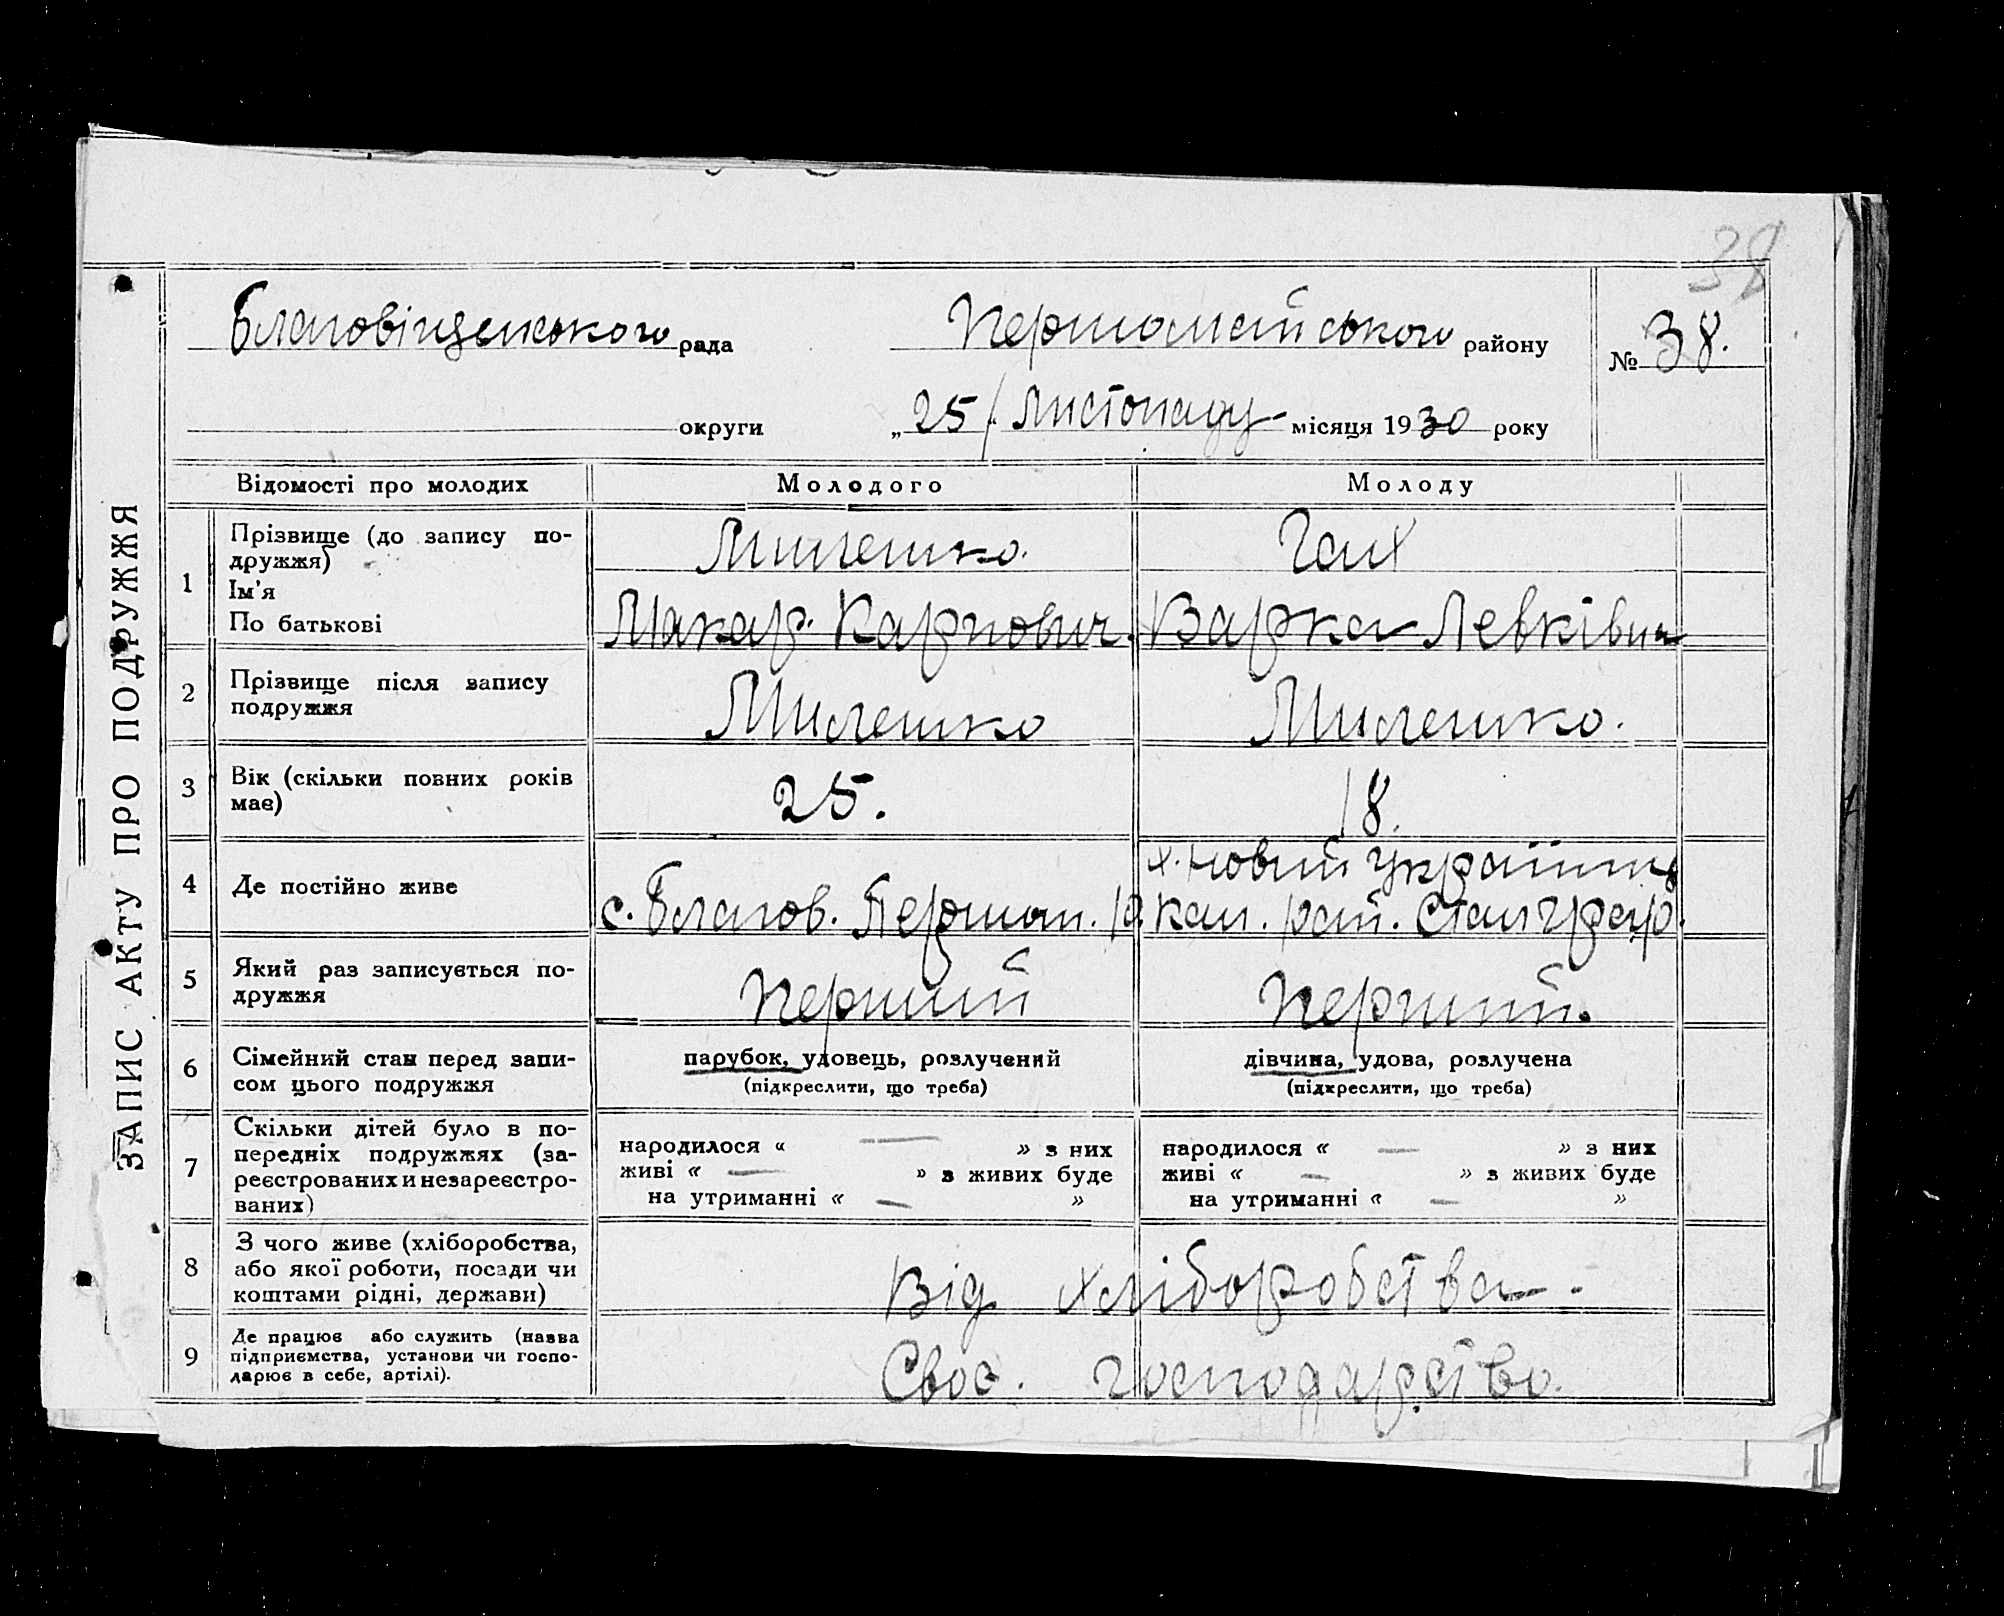 38
Благовіщенського рада Першомайського району № 38.
округи „25/ Листопаду місяця 1930 року
ЗАПИС АКТУ ПРО ПОДРУЖЖЯ
Відомості про молодих Молодого Молоду
1 Прізвище (до запису по-
дружжя) Милешко. Гах
Ім'я
По батькові Макар. Карпович. Варка Левківна
2 Прізвище після запису
подружжя Милешко Милешко.
3 Вік (скільки повних років
має) 25. 18.
4 Де постійно живе с. Благов. Першом. р. х. новий українець
кам. рай.
5 Який раз записується по-
дружжя Перший Перший.
6 Сімейний стан перед запи-
сом цього подружжя парубок, удовець, розлучений
(підкреслити, що треба) дівчина, удова, розлучена
(підкреслити, що треба)
7 Скільки дітей було в по-
передніх подружжях (за-
реєстрованих и незареєстро-
ваних)
народилося « — » з них
живі « — » з живих буде
на утриманні « — »
народилося « — » з них
живі « — » з живих буде
на утриманні « — »
8 З чого живе (хліборобства,
або якої роботи, посади чи
коштами рідні, держави) Від хліборобства.
9 Де працює або служить (назва
підприємства, установи чи госпо-
дарює в себе, артілі). Своє. господарство.